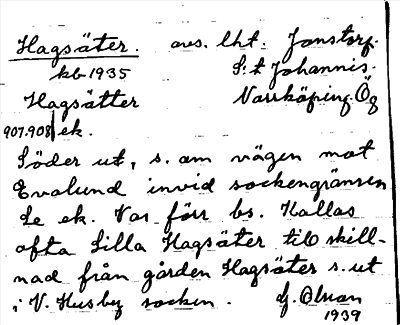 Hagsäter. avs. lht. Jonstorp.
kb 1935 S:t Johannis.
Hagsätter Norrköping. Ög
907.908 ek.
Söder ut, s. om vägen mot
Evalund invid sockengränsen
Le ek. Var förr bs. Kallas
ofta Lilla Hagsäter till skill-
nad från gården Hagsäter s. ut
i V. Husby socken.
1939